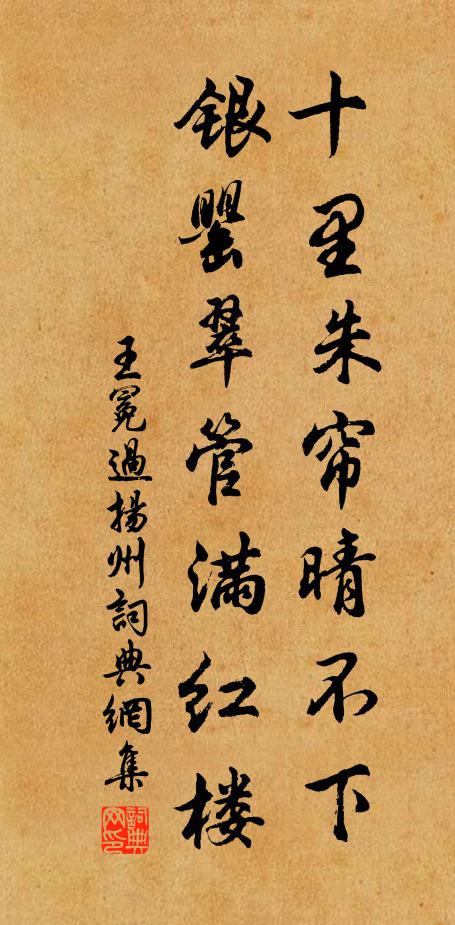 十里朱帘晴不下
银罂翠管满红楼
王冕過揚州詞典網集
詞典网印